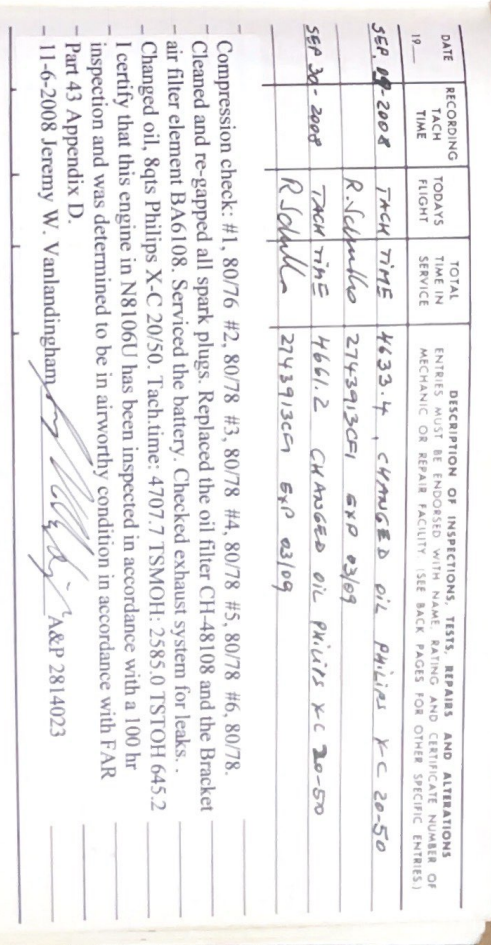 DATE
19
RECORDING
TACH
TIME
TODAYS
FLIGHT
TOTAL
TIME IN
SERVICE
DESCRIPTION OF INSPECTIONS, TESTS, REPAIRS AND ALTERATIONS
ENTRIES MUST BE ENDORSED WITH NAME, RATING AND CERTIFICATE NUMBER OF
MECHANIC OR REPAIR FACILITY. (SEE BACK PAGES FOR OTHER SPECIFIC ENTRIES.)
SEP. 09-2008 TACH TIME 4633.4, CHANGED OIL PHILIPS X-C 20-50
2743913CFI EXP 03/09
SEP 30-2008 TACH TIME 4661.2 CHANGED OIL PHILIPS X-C 20-50
2743913CFI EXP 03/09
Compression check: #1, 80/76 #2, 80/78 #3, 80/78 #4, 80/78 #5, 80/78 #6, 80/78.
Cleaned and re-gapped all spark plugs. Replaced the oil filter CH-48108 and the Bracket
air filter element BA6108. Serviced the battery. Checked exhaust system for leaks. .
Changed oil, 8qts Philips X-C 20/50. Tach.time: 4707.7 TSMOH: 2585.0 TSTOH 645.2
I certify that this engine in N8106U has been inspected in accordance with a 100 hr
inspection and was determined to be in airworthy condition in accordance with FAR
Part 43 Appendix D.
11-6-2008 Jeremy W. Vanlandingham A&P 2814023